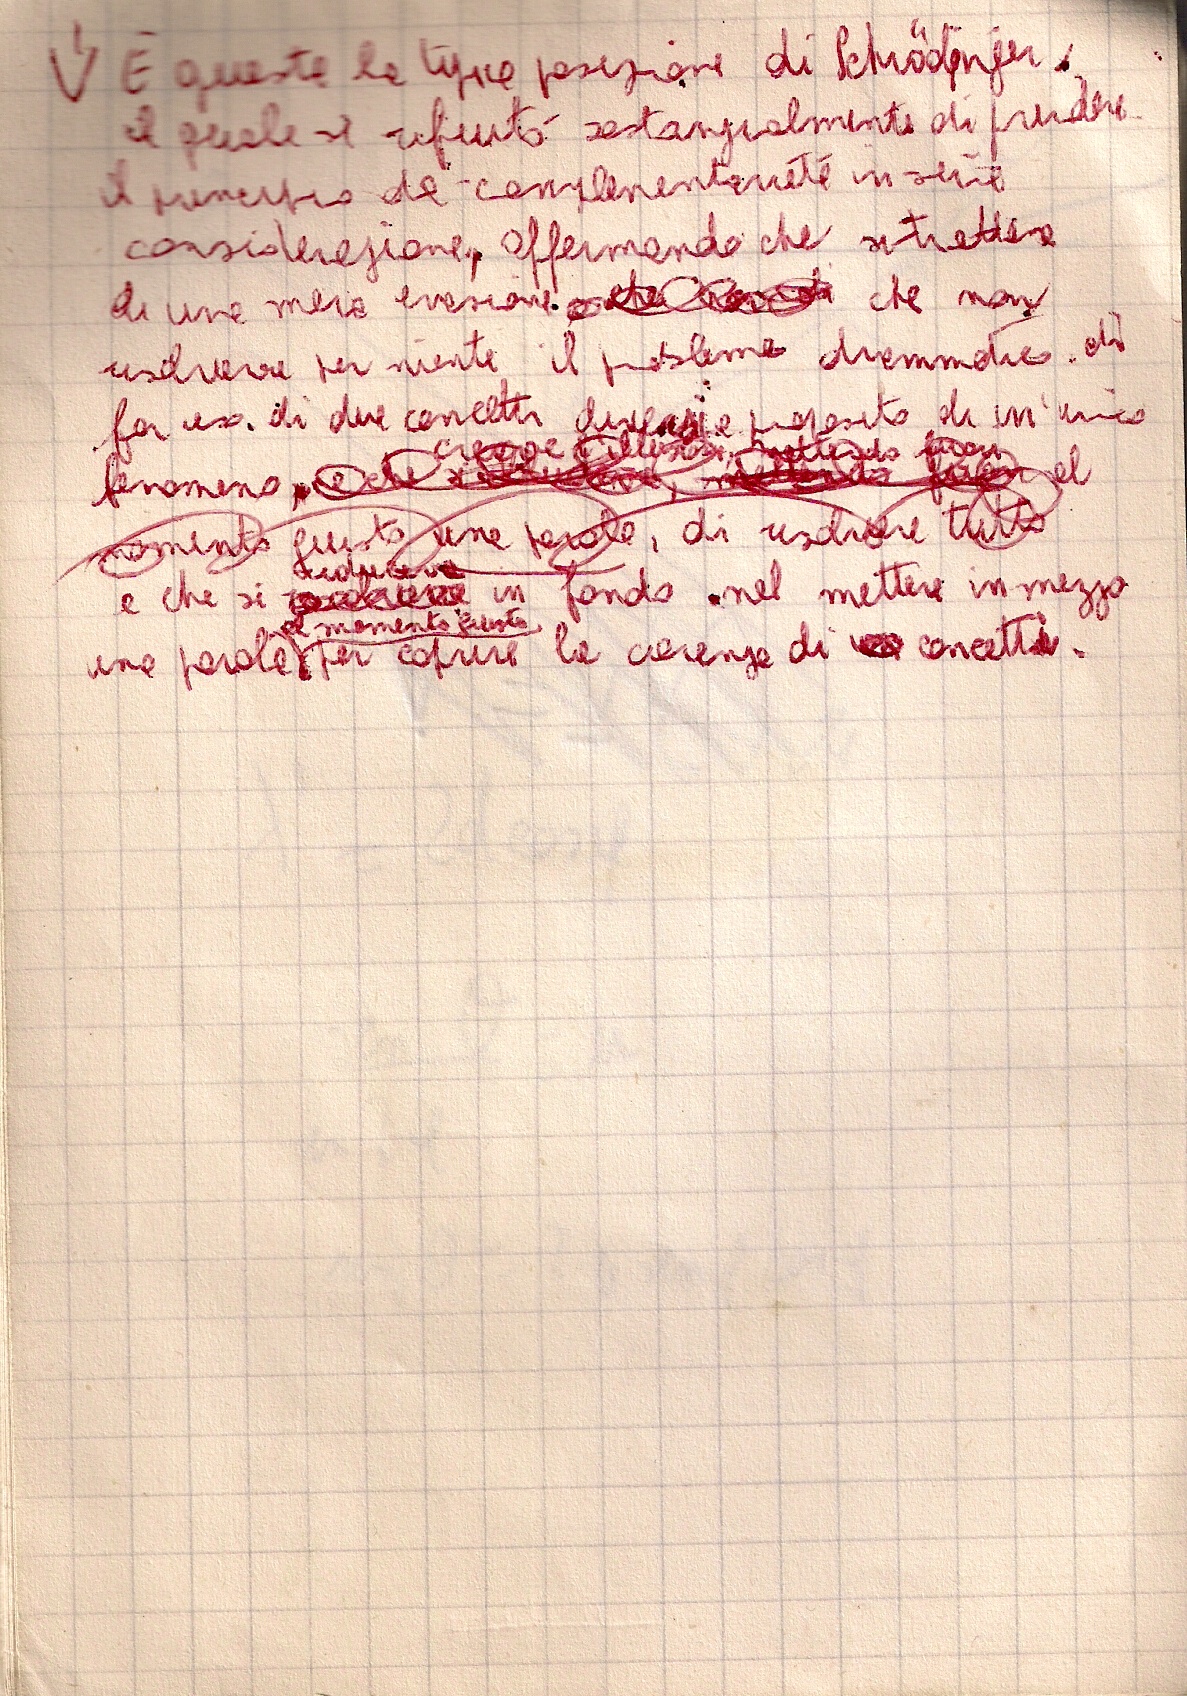 È questa la tipica posizione di Schrödinger,
il quale si rifiutò sostanzialmente di prendere
il principio di complementarietà in seria
considerazione, affermando che si trattava
di una mera evasione che non
risolveva per niente il problema drammatico di
far uso di due concetti diversi a proposito di un'unico
fenomeno, e che al
momento giusto una parola, di risolvere tutto
riduceva
e che si in fondo nel mettere in mezzo
al momento giusto
una parola per coprire la carenza di concetti.